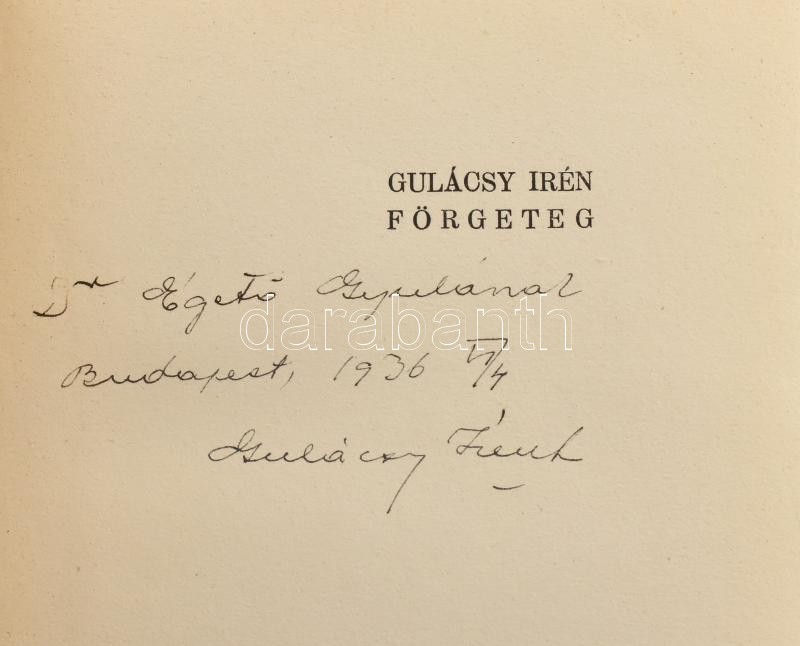 GULÁCSY IRÉN
FÖRGETEG
Dr Égető Gyulának
darabanth
Budapest, 1936 VI/4
Gulácsy Irén